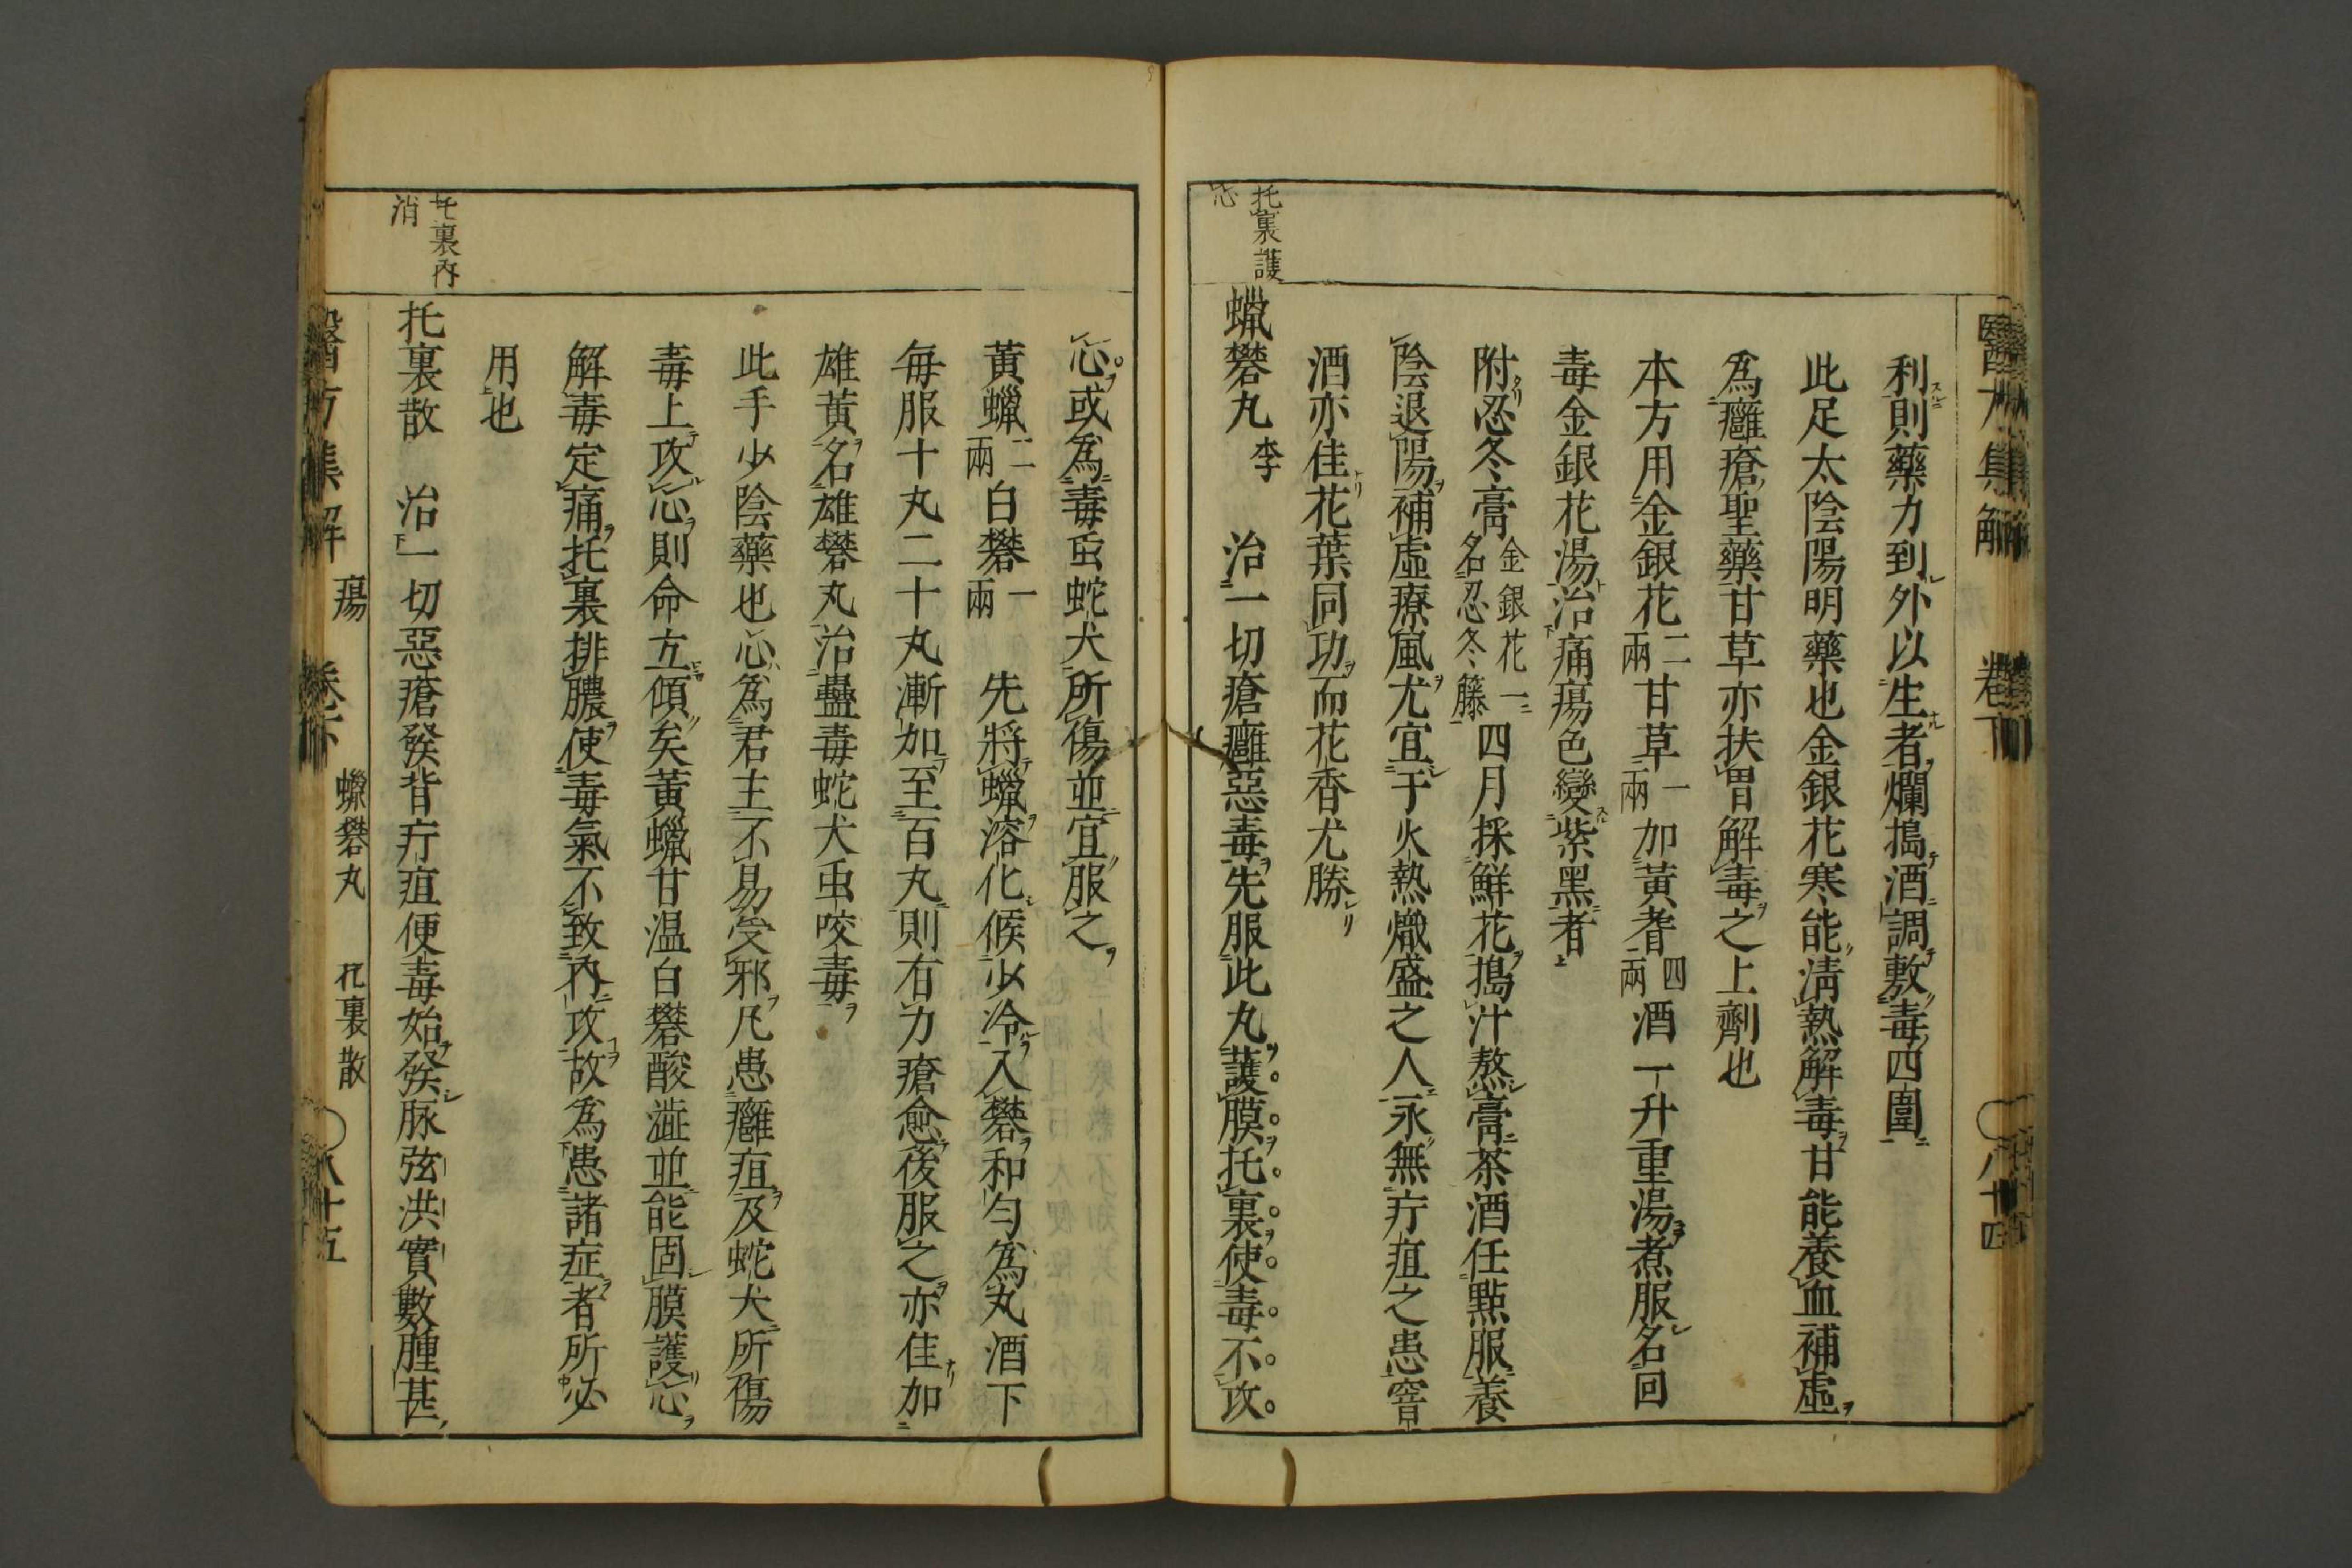 醫方集解 卷下 八十四
利則藥力到外以生者爛搗酒調敷毒四圍
此足太陰陽明藥也金銀花寒能淸熱解毒甘能養血補虛
爲癰瘡聖藥甘草亦扶胃解毒之上劑也
本方用金銀花二兩甘草一兩加黃耆四兩酒一升重湯煮服名回
毒金銀花湯治痛瘍色變紫黑者
附忍冬膏金銀花一名忍冬籐四月採鮮花搗汁熬膏茶酒任點服養
陰退陽補虛療風尤宜于火熱熾盛之人永無疔疽之患窨
酒亦佳花葉同功而花香尤勝
托裏護心
蠟礬丸 李 治一切瘡癰惡毒先服此丸護膜托裏使毒不攻
心或爲毒虫蛇犬所傷並宜服之
黃蠟二兩白礬一兩 先將蠟溶化候少冷入礬和勻爲丸酒下
每服十丸二十丸漸加至百丸則有力瘡愈後服之亦佳加
雄黃名雄礬丸治蠱毒蛇犬虫咬毒
此手少陰藥也心爲君主不易受邪凡患癰疽及蛇犬所傷
毒上攻心則命立傾矣黃蠟甘温白礬酸澁並能固膜護心
解毒定痛托裏排膿使毒氣不致內攻故爲患諸症者所必
用也
托裏內消
托裏散 治一切惡瘡發背疔疽便毒始發脉弦洪實數腫甚
醫方集解 瘍 卷下 蠟礬丸 托裏散 八十五